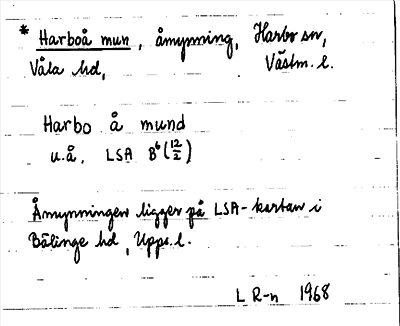 * Harboå mun, åmynning, Harbo sn,
Våla hd, Västm. l.
Harbo å mund
u.å. LSA B⁶(12/2)
Åmynningen ligger på LSA-kartan i
Bälinge hd, Upps. l.
L R-n 1968